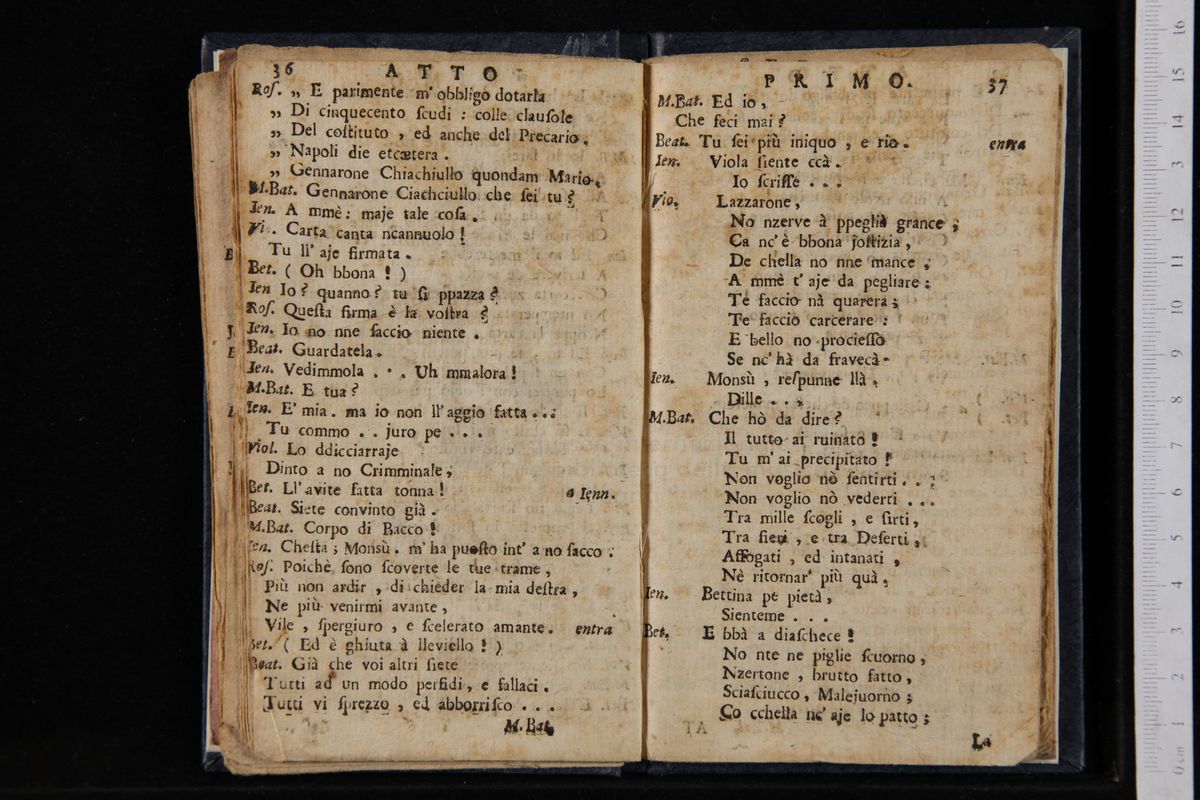 36 ATTO
Roſ. „ E parimente m' obbligo dotarla
„ Di cinquecento ſcudi : colle clauſole
„ Del coſtituto , ed anche del Precario.
„ Napoli die etcætera .
„ Gennarone Chiachiullo quondam Mario.
M.Bat. Gennarone Ciachciullo che ſei tu ?
Ien. A mmè : maje tale coſa .
Vi. Carta canta ncannuolo !
Tu ll' aje firmata .
Bet. ( Oh bbona ! )
Ien Io ? quanno ? tu ſi ppazza ?
Roſ. Queſta firma è la voſtra ?
Ien. Io no nne ſaccio niente .
Beat. Guardatela .
Ien. Vedimmola . . . Uh mmalora !
M.Bat. E tua ?
Ien. E' mia . ma io non ll' aggio fatta . . .
Tu commo . . juro pe . . .
Viol. Lo ddicciarraje
Dinto a no Crimminale ;
Bet. Ll' avite fatta tonna ! a Ienn.
Beat. Siete convinto già .
M.Bat. Corpo di Bacco !
Ien. Cheſta ; Monsù . m' ha pueſto int' a no ſacco .
Roſ. Poichè ſono ſcoverte le tue trame ,
Più non ardir , di chieder la mia deſtra ,
Ne più venirmi avante ,
Vile , ſpergiuro , e ſcelerato amante . entra
Bet. ( Ed è ghiuta à lleviello ! )
Beat. Già che voi altri ſiete
Tutti ad un modo perfidi , e fallaci .
Tutti vi ſprezzo , ed abborriſco . . .
M.Bat.
PRIMO. 37
M.Bat. Ed io ,
Che feci mai ?
Beat. Tu ſei più iniquo , e rio . entra
Ien. Viola ſiente ccà .
Io ſcriſſe . . .
Vio. Lazzarone ,
No nzerve à ppeglià grance ;
Ca nc' è bbona joſtizia ,
De chella no nne mance ;
A mmè t' aje da pegliare :
Te faccio nà quarera ;
Te faccio carcerare :
E bello no procieſſo
Se nc' hà da fravecà .
Ien. Monsù , reſpunne llà ,
Dille . . .
M.Bat. Che hò da dire ?
Il tutto ai ruinato !
Tu m' ai precipitato !
Non voglio nò ſentirti . . .
Non voglio nò vederti . . .
Tra mille ſcogli , e ſirti ,
Tra fieri , e tra Deſerti ,
Affogati , ed intanati ,
Nè ritornar' più quà .
Ien. Bettina pe pietà ,
Sienteme . . .
Bet. E bbà a diaſchece !
No nte ne piglie ſcuorno ,
Nzertone , brutto fatto ,
Sciaſciucco , Malejuorno ;
Co cchella nc' aje lo patto ;
La